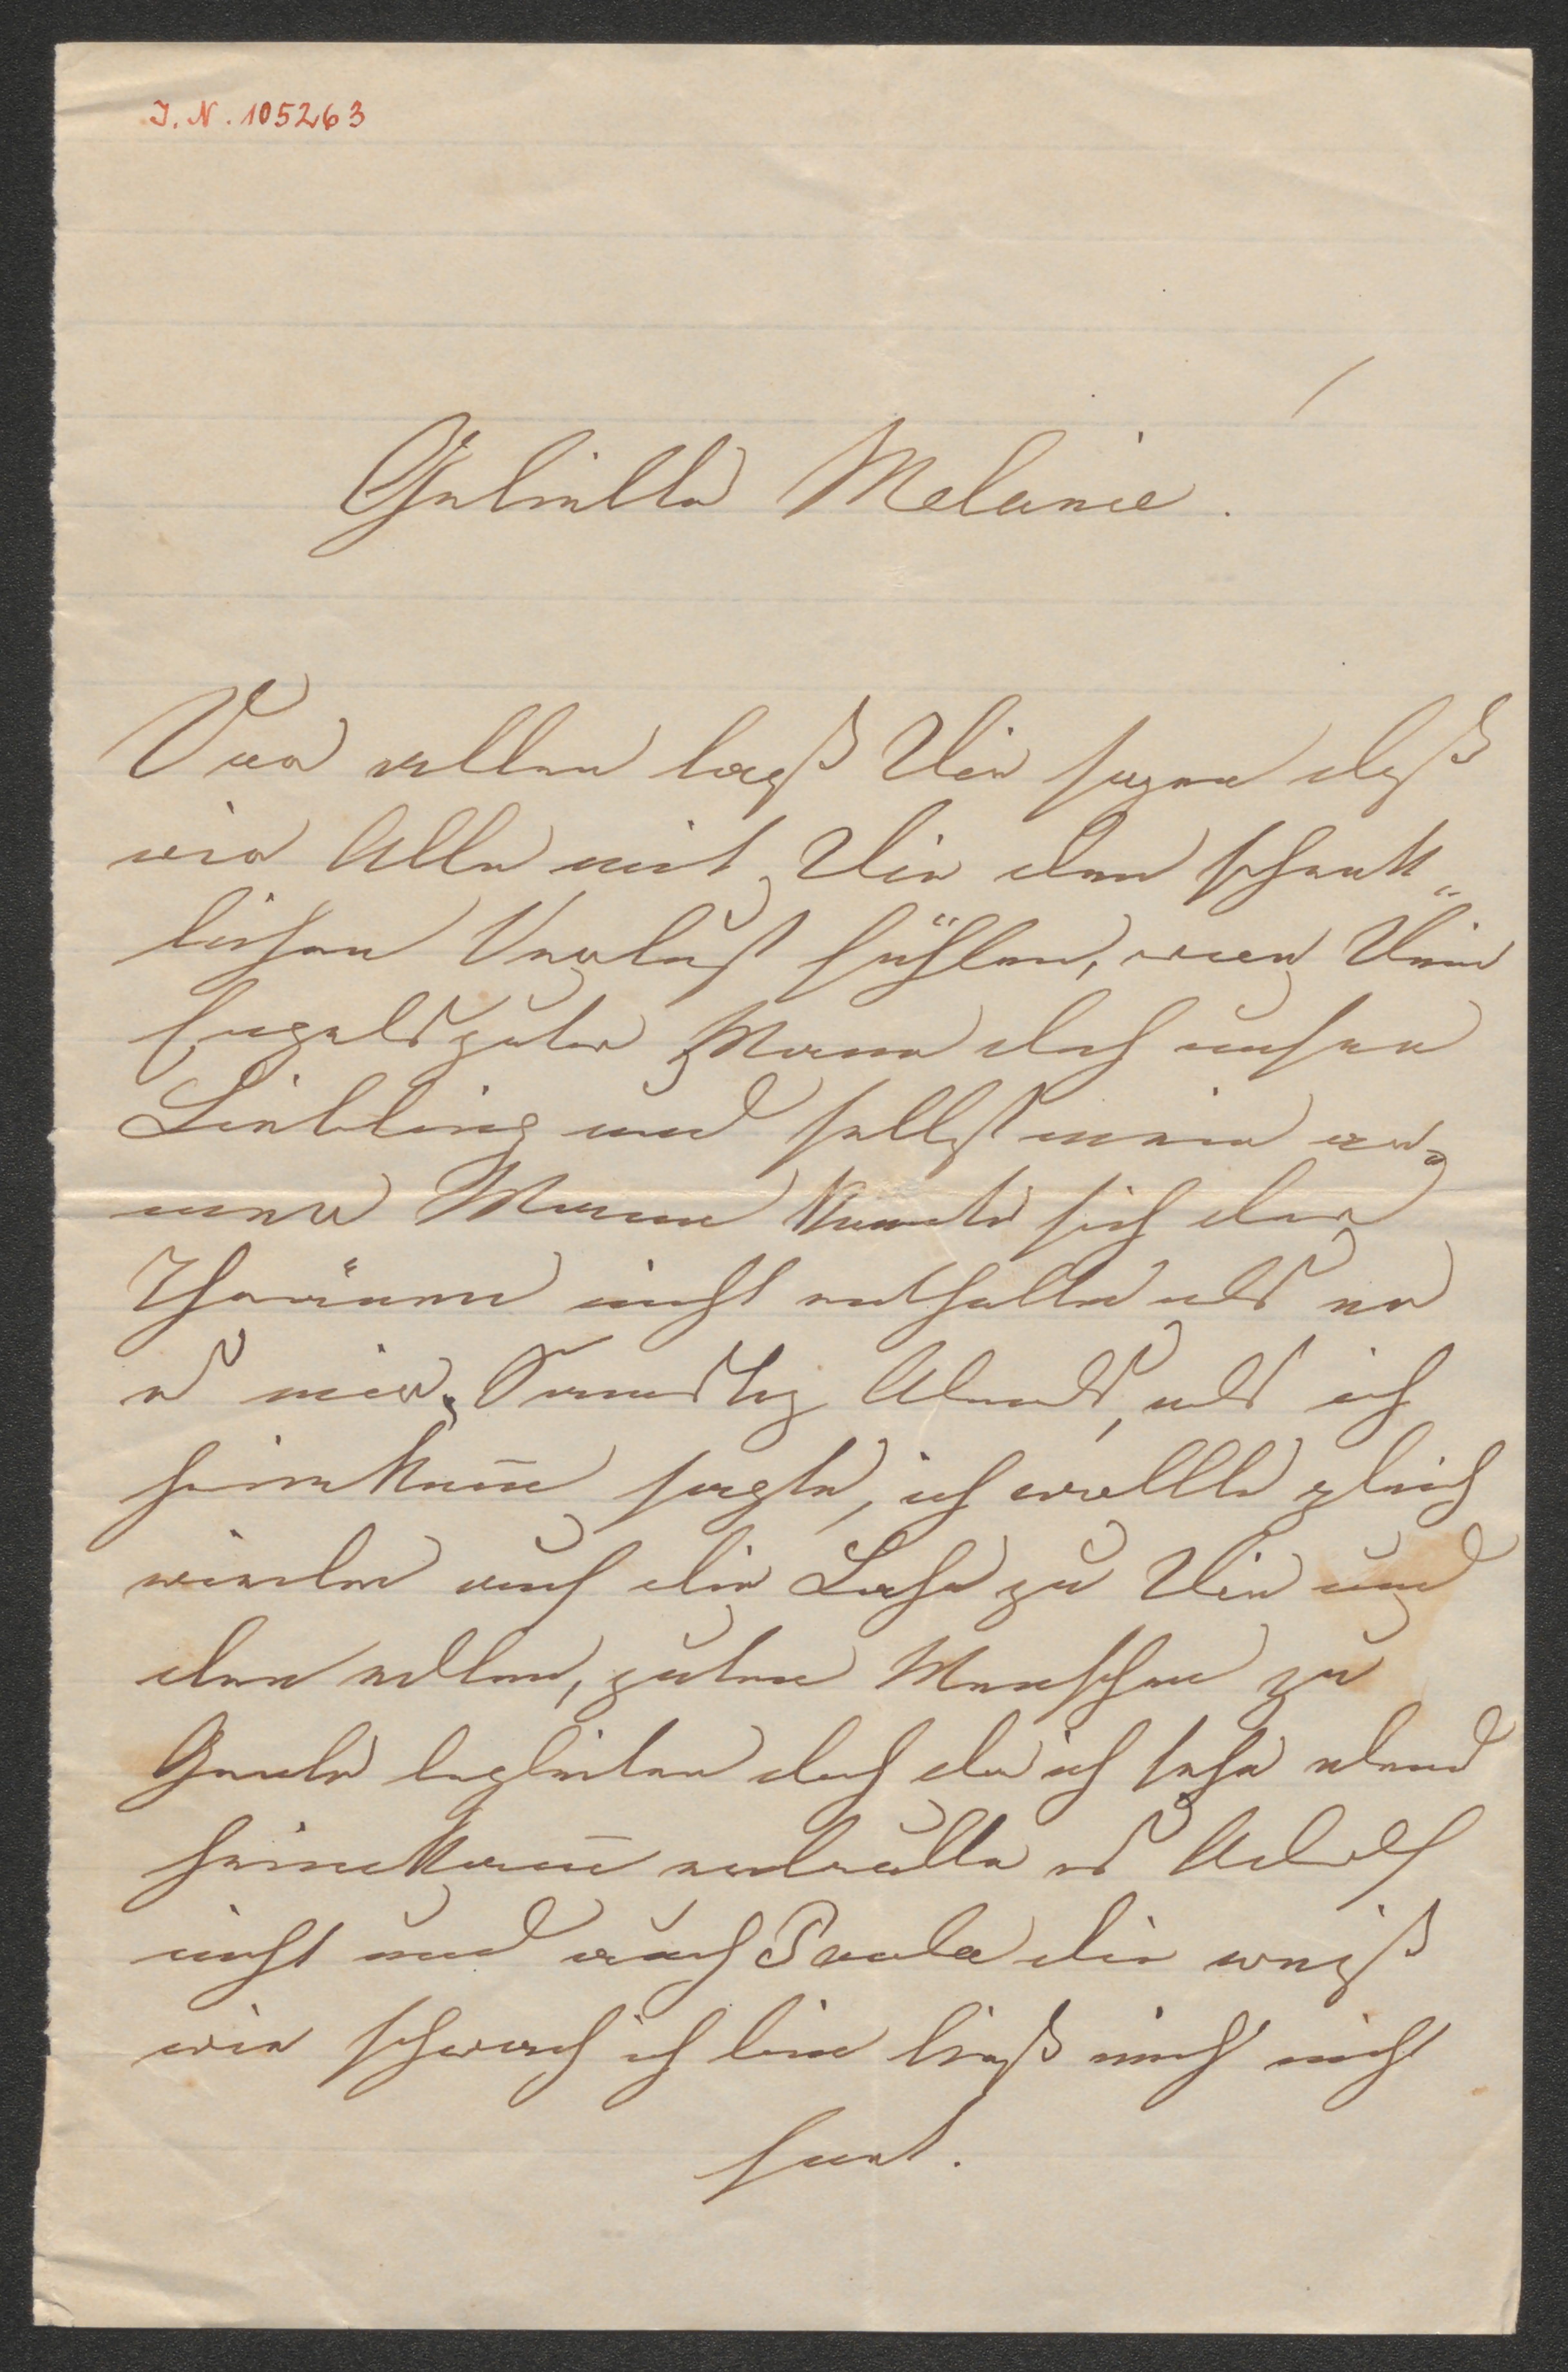 J. N. 105263
Geliebte Melanie.
Vor allem laß Dir sagen daß
wir Alle mit Dir den schreck„
lichen Verlust fühlen, war Dein
Engelsguter Mann doch unser
Liebling und selbst mein ar„
mer Mann konnte sich der
Thränen nicht enthalten als er
es mir, Samstag Abends, als ich
heimkam̅ sagte, ich wollte gleich
wieder auf die Bahn zu Dir und
den edlen, guten Menschen zu
Grabe begleiten doch da ich sehr elend
heimkam̅ erlaubte es Adolf
nicht und auch Paula die weiß
wie schwach ich bin ließ mich nicht
fort.